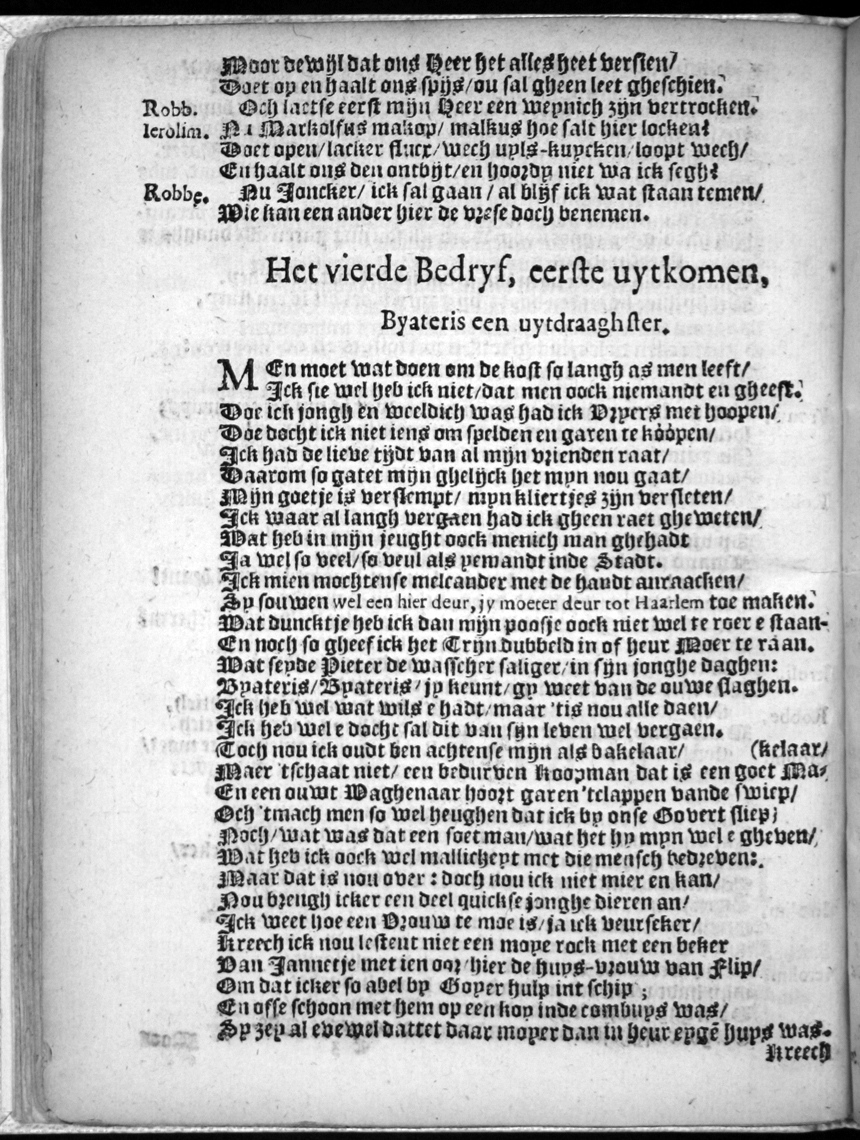 Moor dewijl dat ons Heer het alles heet versien/
Doet op en haalt ons spijs/ou sal gheen leet gheschien.
Robb. Och lactse eerst mijn Heer een weynich zijn vertrocken.
Ierolim. Na Markolfus makop/ malkus hoe salt hier locken?
Doet open/lacker sluex/wech uyls-kuycken/loopt wech/
En haalt ons den ontbijt/en hoordy niet wa ick segh?
Robbe. Nu Joncker/ ick sal gaan/ al blijf ick wat staan temen/
Wie kan een ander hier de vrese doch benemen.
Het vierde Bedryf, eerste uytkomen,
Byateris een uytdraaghster.
MEn moet wat doen om de kost so langh as men leeft/
Ick sie wel heb ick niet/dat men oock niemandt en gheeft.
Doe ick jongh en weeldich was had ick Vrpers met hoopen/
Doe docht ick niet iens om spelden en garen te koopen/
Ick had de lieve tijdt van al mijn vrienden raat/
Daarom so gatet mijn ghelijck het myn nou gaat/
Mijn goetje is verslempt/ myn kliertjes zijn versleten/
Ick waar al langh vergaen had ick gheen raet gheweten/
Wat heb in mijn jeught oock menich man ghehadt
Ja wel so veel/so veul als yemandt inde Stadt.
Ick mien mochtense melcander met de handt anraacken/
Sy souwen wel een hier deur, jy moeter deur tot Haarlem toe maken.
Wat duncktje heb ick dan mijn poosje oock niet wel te roer e staan-
En noch so gheef ick het Trijn dubbeld in of heur Moer te raan.
Wat seyde Pieter de wasscher saliger/in sijn jonghe daghen:
Byateris/Byateris/jy keunt/gy weet van de ouwe slaghen.
Ick heb wel wat wils e hadt/maar 'tis nou alle daen/
Ick heb wel e docht sal dit van sijn leven wel vergaen.
Toch nou ick oudt ben achtense mijn als bakelaar/ (kelaar/
Maer 'tschaat niet/ een bedurven Koopman dat is een goet Ma-
En een ouwt Waghenaar hoort garen 'tclappen vande swiep/
Och 'tmach men so wel heughen dat ick by onse Govert sliep;
Noch/wat was dat een soet man/wat het hy myn wel e gheven/
Wat heb ick oock wel mallicheyt met die mensch bedreven:
Maar dat is nou over: doch nou ick niet mier en kan/
Nou brengh icker een deel quickse jonghe dieren an/
Ick weet hoe een Vrouw te moe is/ja ick veurseker/
Kreech ick nou lestent niet een moye rock met een beker
Van Jannetje met ien oor/hier de huys-vrouw van Flip/
Om dat icker so abel by Goyer hulp int schip;
En offe schoon met hem op een koy inde combuys was/
Sy zey al evewel dattet daar moyer dan in heur eygē huys was.
Kreech